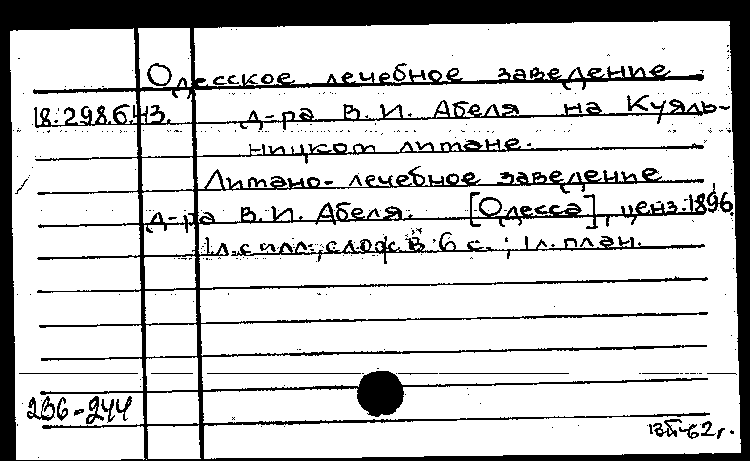 Одесское лечебное заведение
18.298.6.43. д-ра В. И. Абеля на Куяль-
ницком лимане.
Лимано-лечебное заведение
д-ра В. И. Абеля. [Одесса], ценз. 1896.
1 л. с илл., слож. в 6 с.; 1 л. план.
236-244
62 г.